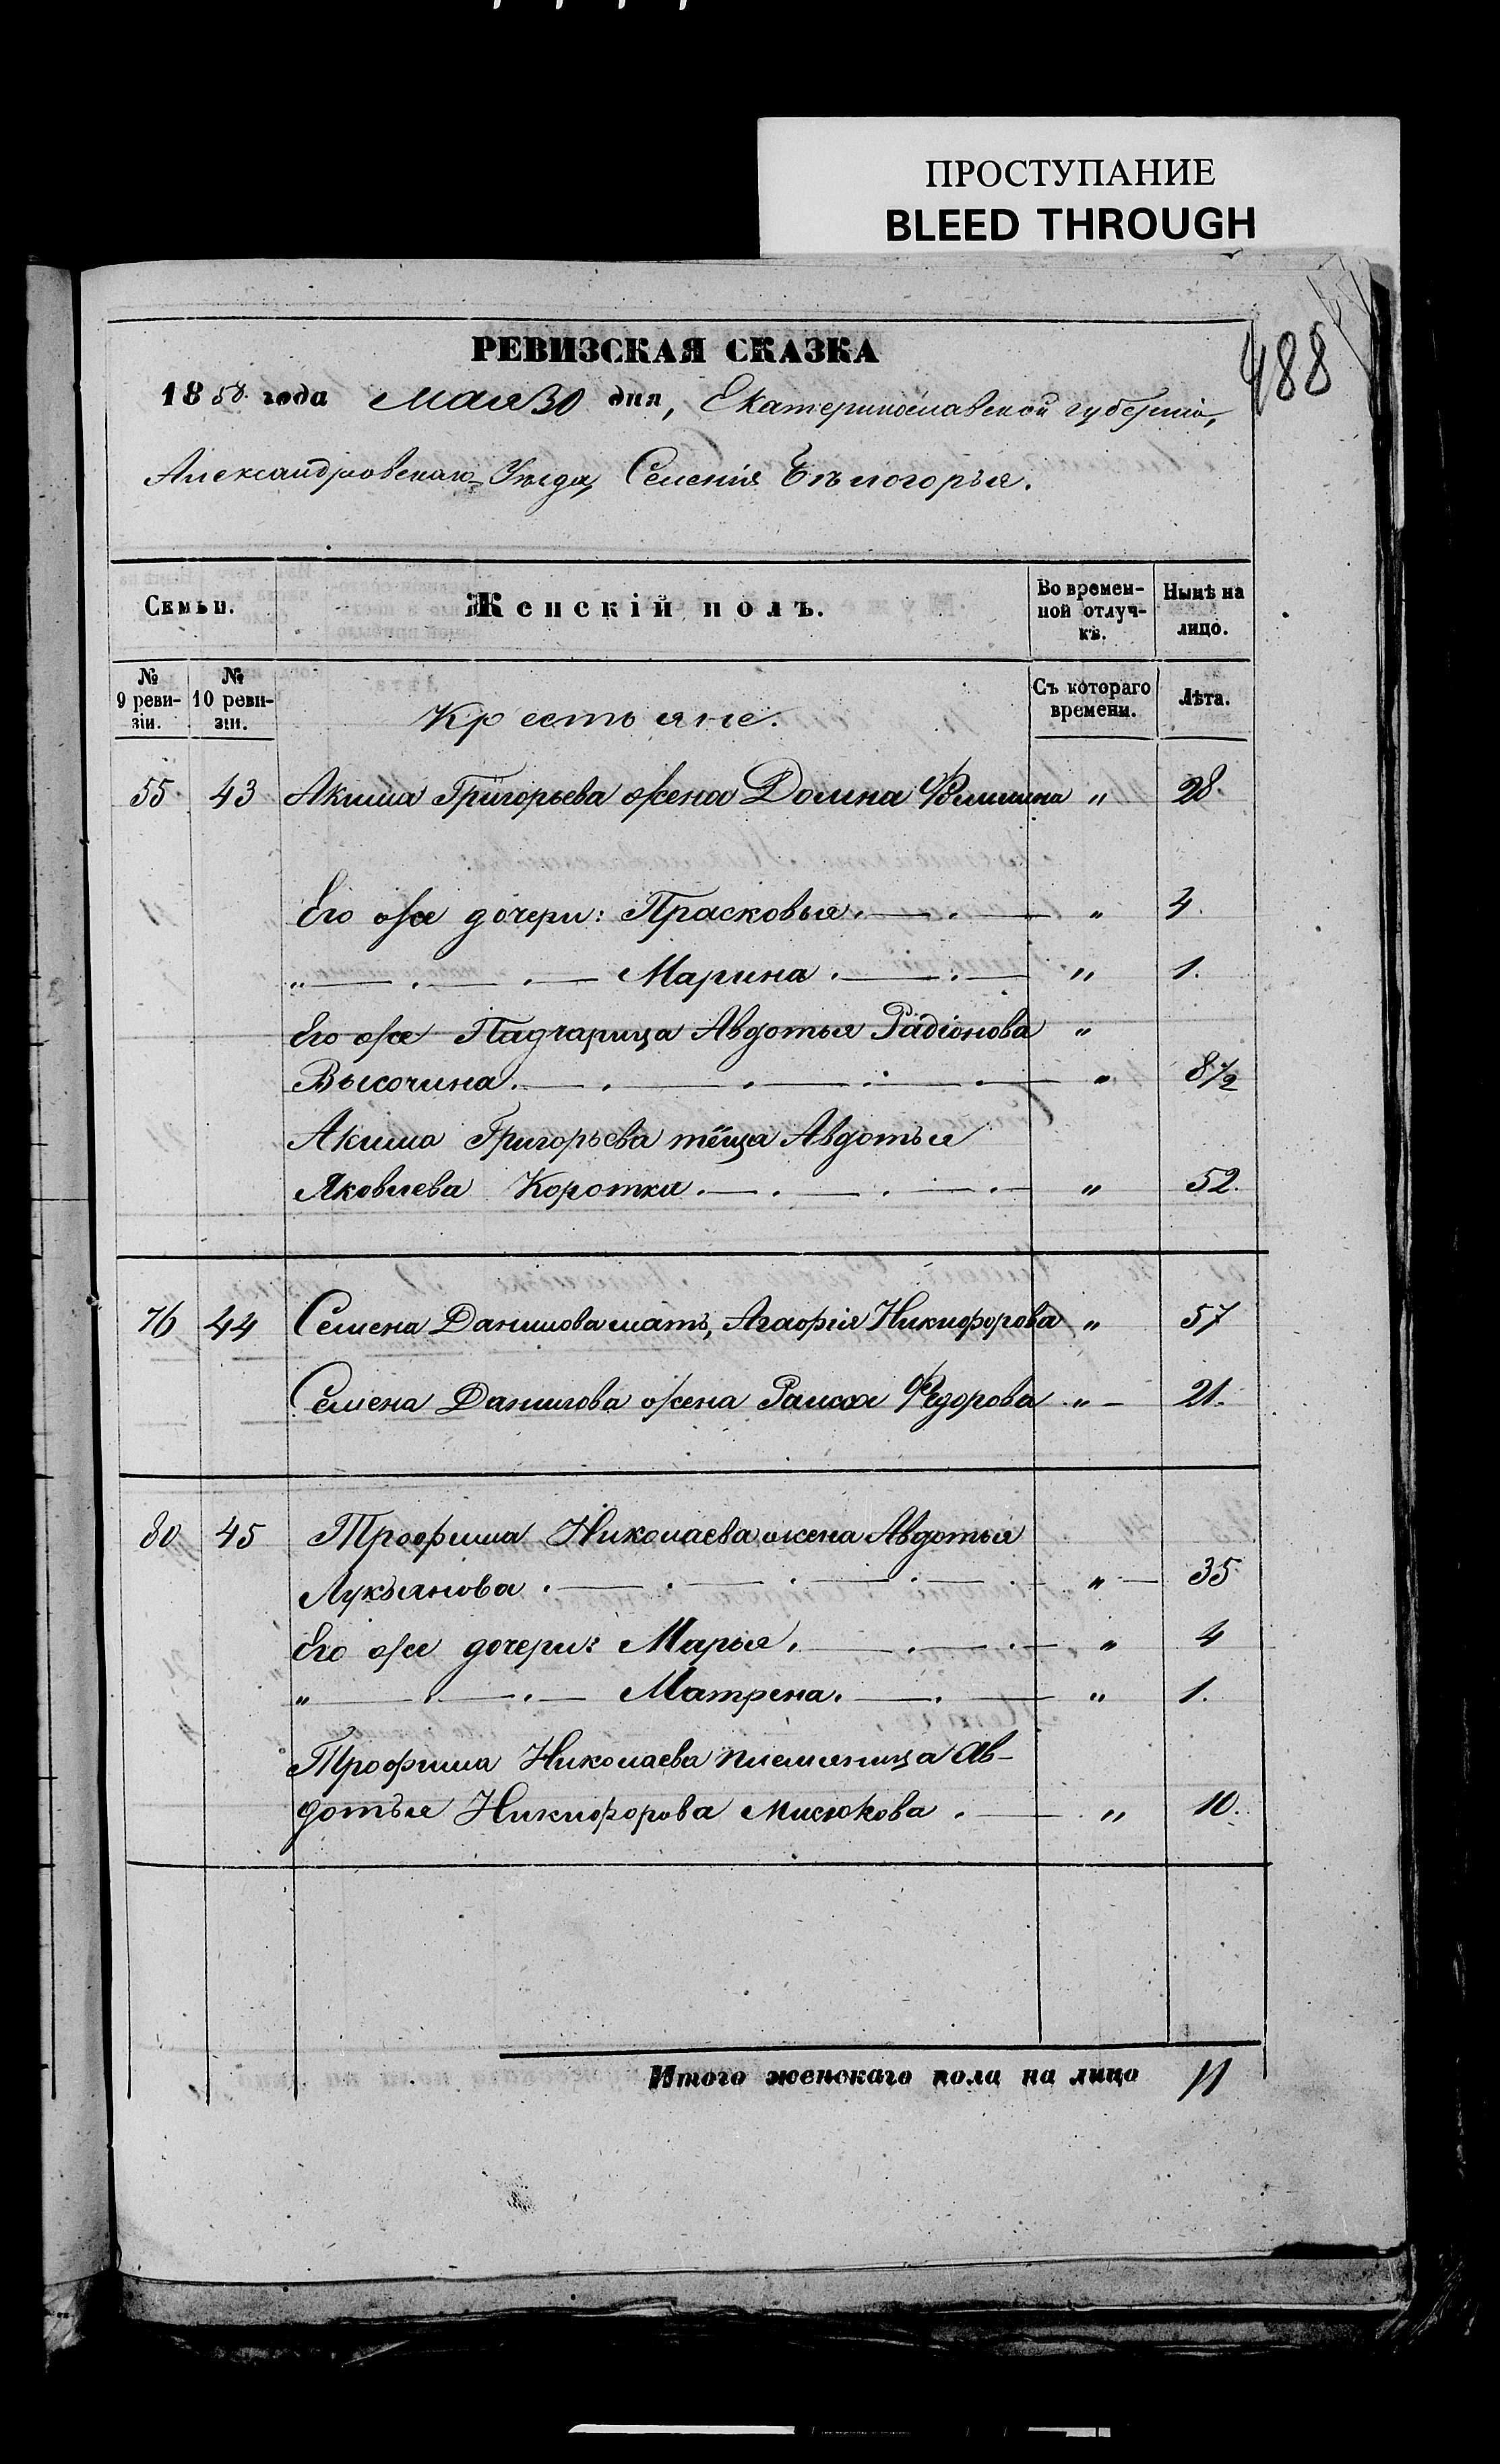 ПРОСТУПАНИЕ
BLEED THROUGH
488
РЕВИЗСКАЯ СКАЗКА
1858 года Мая 30 дня, Екатеринославской губерніи,
Александровскаго Уѣзда, Селенія Бѣлогорья.
Семьи.
Женскій полъ.
Во времен-
ной отлуч-
кѣ.
Нынѣ на
лицо.
№
9 реви-
зіи.
№
10 реви-
зіи.
Крестьяне.
Съ котораго
времени.
Лѣта.
55 43 Акима Григорьева жена Домна " 28.
Его же дочери: Прасковья. — . — " 4.
" — . — . — Марина. — . — " 1.
Его же Падчарица Авдотья Радіонова "
Высочина. — . — . — . — . — " 8½
Акима Григорьева тёща Авдотья
Яковлева Коротка. — . — . — . — " 52.
76 44 Семена Данилова мать, Агафія Никифорова " 57
Семена Данилова жена Раиса Федорова " — 21.
80 45 Трофима Николаева жена Авдотья
Лукьянова . — . — . — . — . — " — 35
Его же дочери: Марья. — . — . — " 4
" — . — . — Матрена. — . — " 1.
Трофима Николаева племяница Ав-
дотья Никифорова Мисюкова . — " 10.
Итого женскаго пола на лицо 11